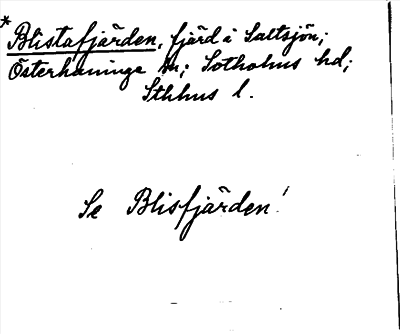 * Blistafjärden, fjärd i Saltsjön;
Österhaninge sn; Sotholms hd;
Sthlms l.
Se Blisfjärden!